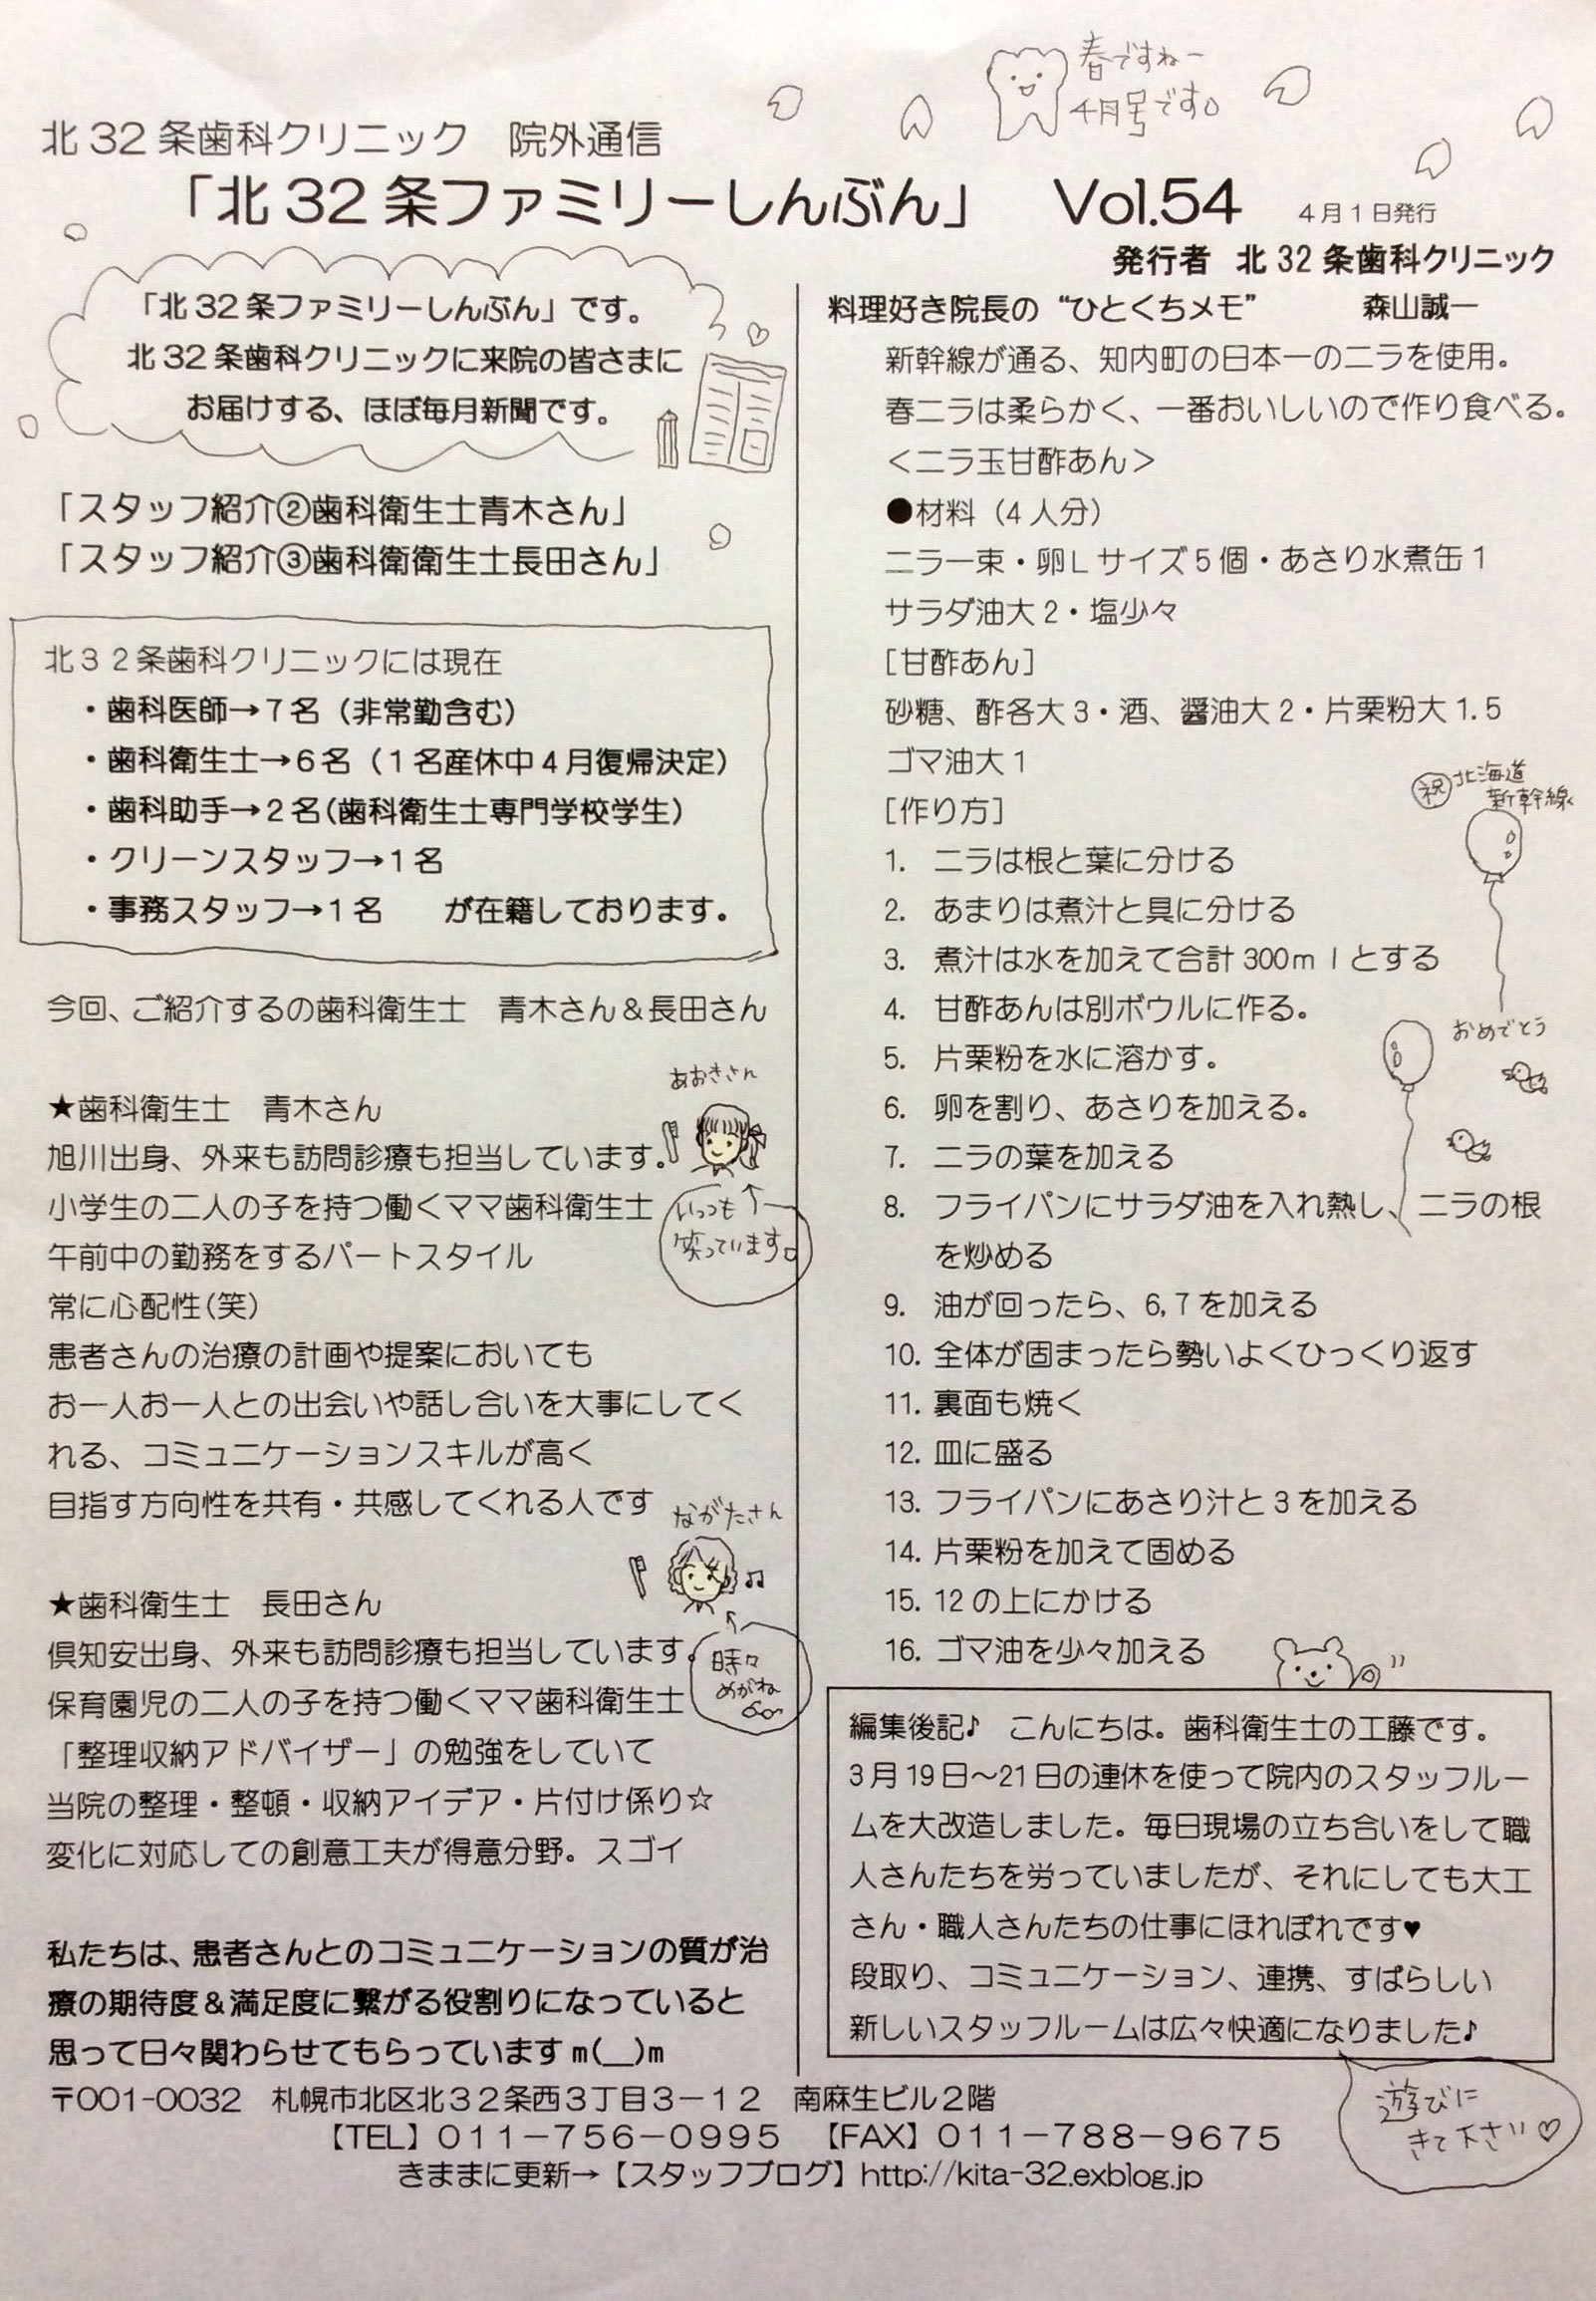 春ですねー
4月号です。
北32条歯科クリニック　院外通信
「北32条ファミリーしんぶん」　Vol.54　4月1日発行
発行者　北32条歯科クリニック
「北32条ファミリーしんぶん」です。
北32条歯科クリニックに来院の皆さまに
お届けする、ほぼ毎月新聞です。
「スタッフ紹介②歯科衛生士青木さん」
「スタッフ紹介③歯科衛衛生士長田さん」
北32条歯科クリニックには現在
・歯科医師→7名（非常勤含む）
・歯科衛生士→6名（1名産休中4月復帰決定）
・歯科助手→2名(歯科衛生士専門学校学生)
・クリーンスタッフ→1名
・事務スタッフ→1名　　が在籍しております。
今回、ご紹介するの歯科衛生士　青木さん＆長田さん
あおきさん
★歯科衛生士　青木さん
旭川出身、外来も訪問診療も担当しています。
小学生の二人の子を持つ働くママ歯科衛生士
いつも
笑っています。
午前中の勤務をするパートスタイル
常に心配性(笑)
患者さんの治療の計画や提案においても
お一人お一人との出会いや話し合いを大事にしてく
れる、コミュニケーションスキルが高く
目指す方向性を共有・共感してくれる人です
ながたさん
★歯科衛生士　長田さん
倶知安出身、外来も訪問診療も担当しています。
時々
めがね
保育園児の二人の子を持つ働くママ歯科衛生士
「整理収納アドバイザー」の勉強をしていて
当院の整理・整頓・収納アイデア・片付け係り☆
変化に対応しての創意工夫が得意分野。スゴイ
私たちは、患者さんとのコミュニケーションの質が治
療の期待度＆満足度に繋がる役割りになっていると
思って日々関わらせてもらっていますm(__)m
料理好き院長の“ひとくちメモ”　　　森山誠一
新幹線が通る、知内町の日本一のニラを使用。
春ニラは柔らかく、一番おいしいので作り食べる。
＜ニラ玉甘酢あん＞
●材料（4人分）
ニラ一束・卵Lサイズ5個・あさり水煮缶1
サラダ油大2・塩少々
［甘酢あん］
砂糖、酢各大3・酒、醤油大2・片栗粉大1.5
ゴマ油大1
［作り方］
㊗北海道
新幹線
おめでとう
1. ニラは根と葉に分ける
2. あまりは煮汁と具に分ける
3. 煮汁は水を加えて合計300mlとする
4. 甘酢あんは別ボウルに作る。
5. 片栗粉を水に溶かす。
6. 卵を割り、あさりを加える。
7. ニラの葉を加える
8. フライパンにサラダ油を入れ熱し、ニラの根
を炒める
9. 油が回ったら、6,7を加える
10. 全体が固まったら勢いよくひっくり返す
11. 裏面も焼く
12. 皿に盛る
13. フライパンにあさり汁と3を加える
14. 片栗粉を加えて固める
15. 12の上にかける
16. ゴマ油を少々加える
編集後記♪　こんにちは。歯科衛生士の工藤です。
3月19日～21日の連休を使って院内のスタッフルー
ムを大改造しました。毎日現場の立ち合いをして職
人さんたちを労っていましたが、それにしても大工
さん・職人さんたちの仕事にほれぼれです♥
段取り、コミュニケーション、連携、すばらしい
新しいスタッフルームは広々快適になりました♪
遊びに
きて下さい♡
〒001-0032　札幌市北区北32条西3丁目3－12　南麻生ビル2階
【TEL】011－756－0995　【FAX】011－788－9675
きままに更新→【スタッフブログ】http://kita-32.exblog.jp